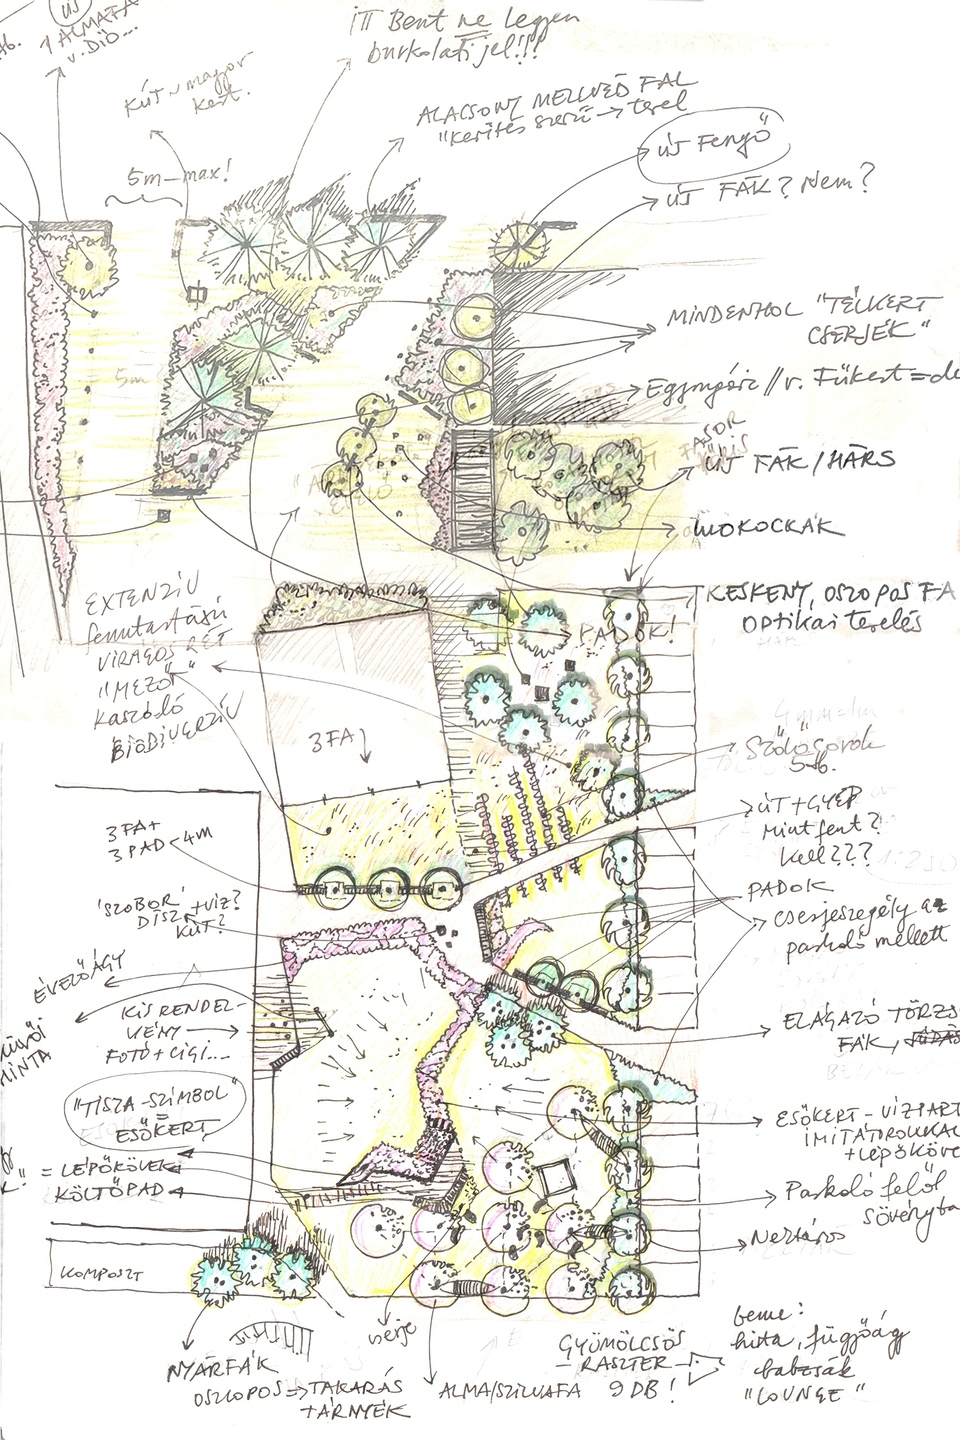 ÚJ
1 ALMAFA
v. DIÓ...
KÚT v. magor
kert.
5m—max!
ITT Bent ne legyen
burkolati jel!!!
ALACSONY MELLVÉD FAL
"kerítés szerű → terel
ÚJ Fenyő
ÚJ FÁK? Nem?
MINDENHOL "TÉLKERT
CSERJÉK"
5m
ÚJ FÁK / HÁRS
MOKOCKÁK
KESKENY, OSZLOPOS FA
OPTIKAI terelés
PADOK!
EXTENZÍV
fenntartású
VIRÁGOS RÉT
"MEZŐ"
kaszáló
BIODIVERZÍV
3 FA
Szőlősorok
5 db.
ÚT + GYEP
Mint fent?
kell???
3 FA +
3 PAD < 4m
'SZOBOR' + VÍZ?
DÍSZ
KÚT?
PADOK
cserjeszegély az
parkoló mellett
ÉVELŐÁGY
KIS RENDEL-
VÉNY
FOTÓ + CIGI....
MINTA
ELÁGAZÓ TÖRZS
FÁK,
"TISZA-SZIMBOL"
=
ESŐKERT
ESŐKERT - VÍZPART
IMITÁTOROKKAL
+ LÉPŐKÖVE
= LÉPŐKÖVEK
KÖLTŐPAD
Parkoló felől
sövény
Nektáros
KOMPOSZT
NYÁRFÁK
OSZLOPOS → TAKARÁS
+ ÁRNYÉK
ALMA/SZILVAFA
GYÜMÖLCSÖS
- RASZTER -
9 DB!
benne:
hinta, függőágy
babzsák
"LOUNGE"